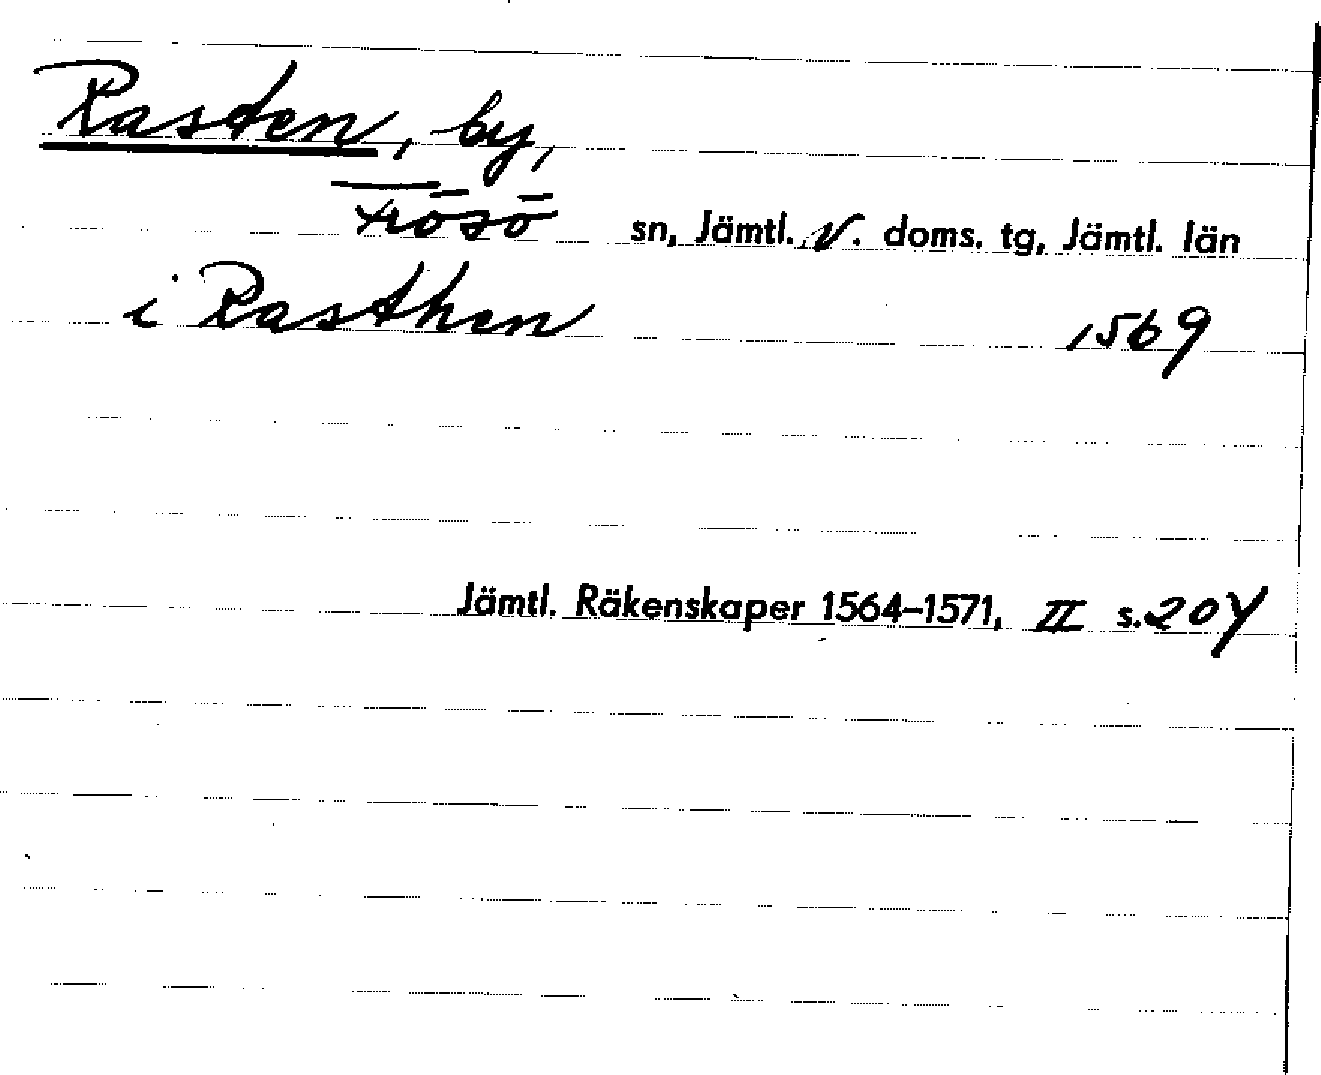 Rasten, by,
Frösö sn, Jämtl. V. doms. tg, Jämtl. län
i Rasthen 1569
Jämtl. Räkenskaper 1564–1571, II s. 207